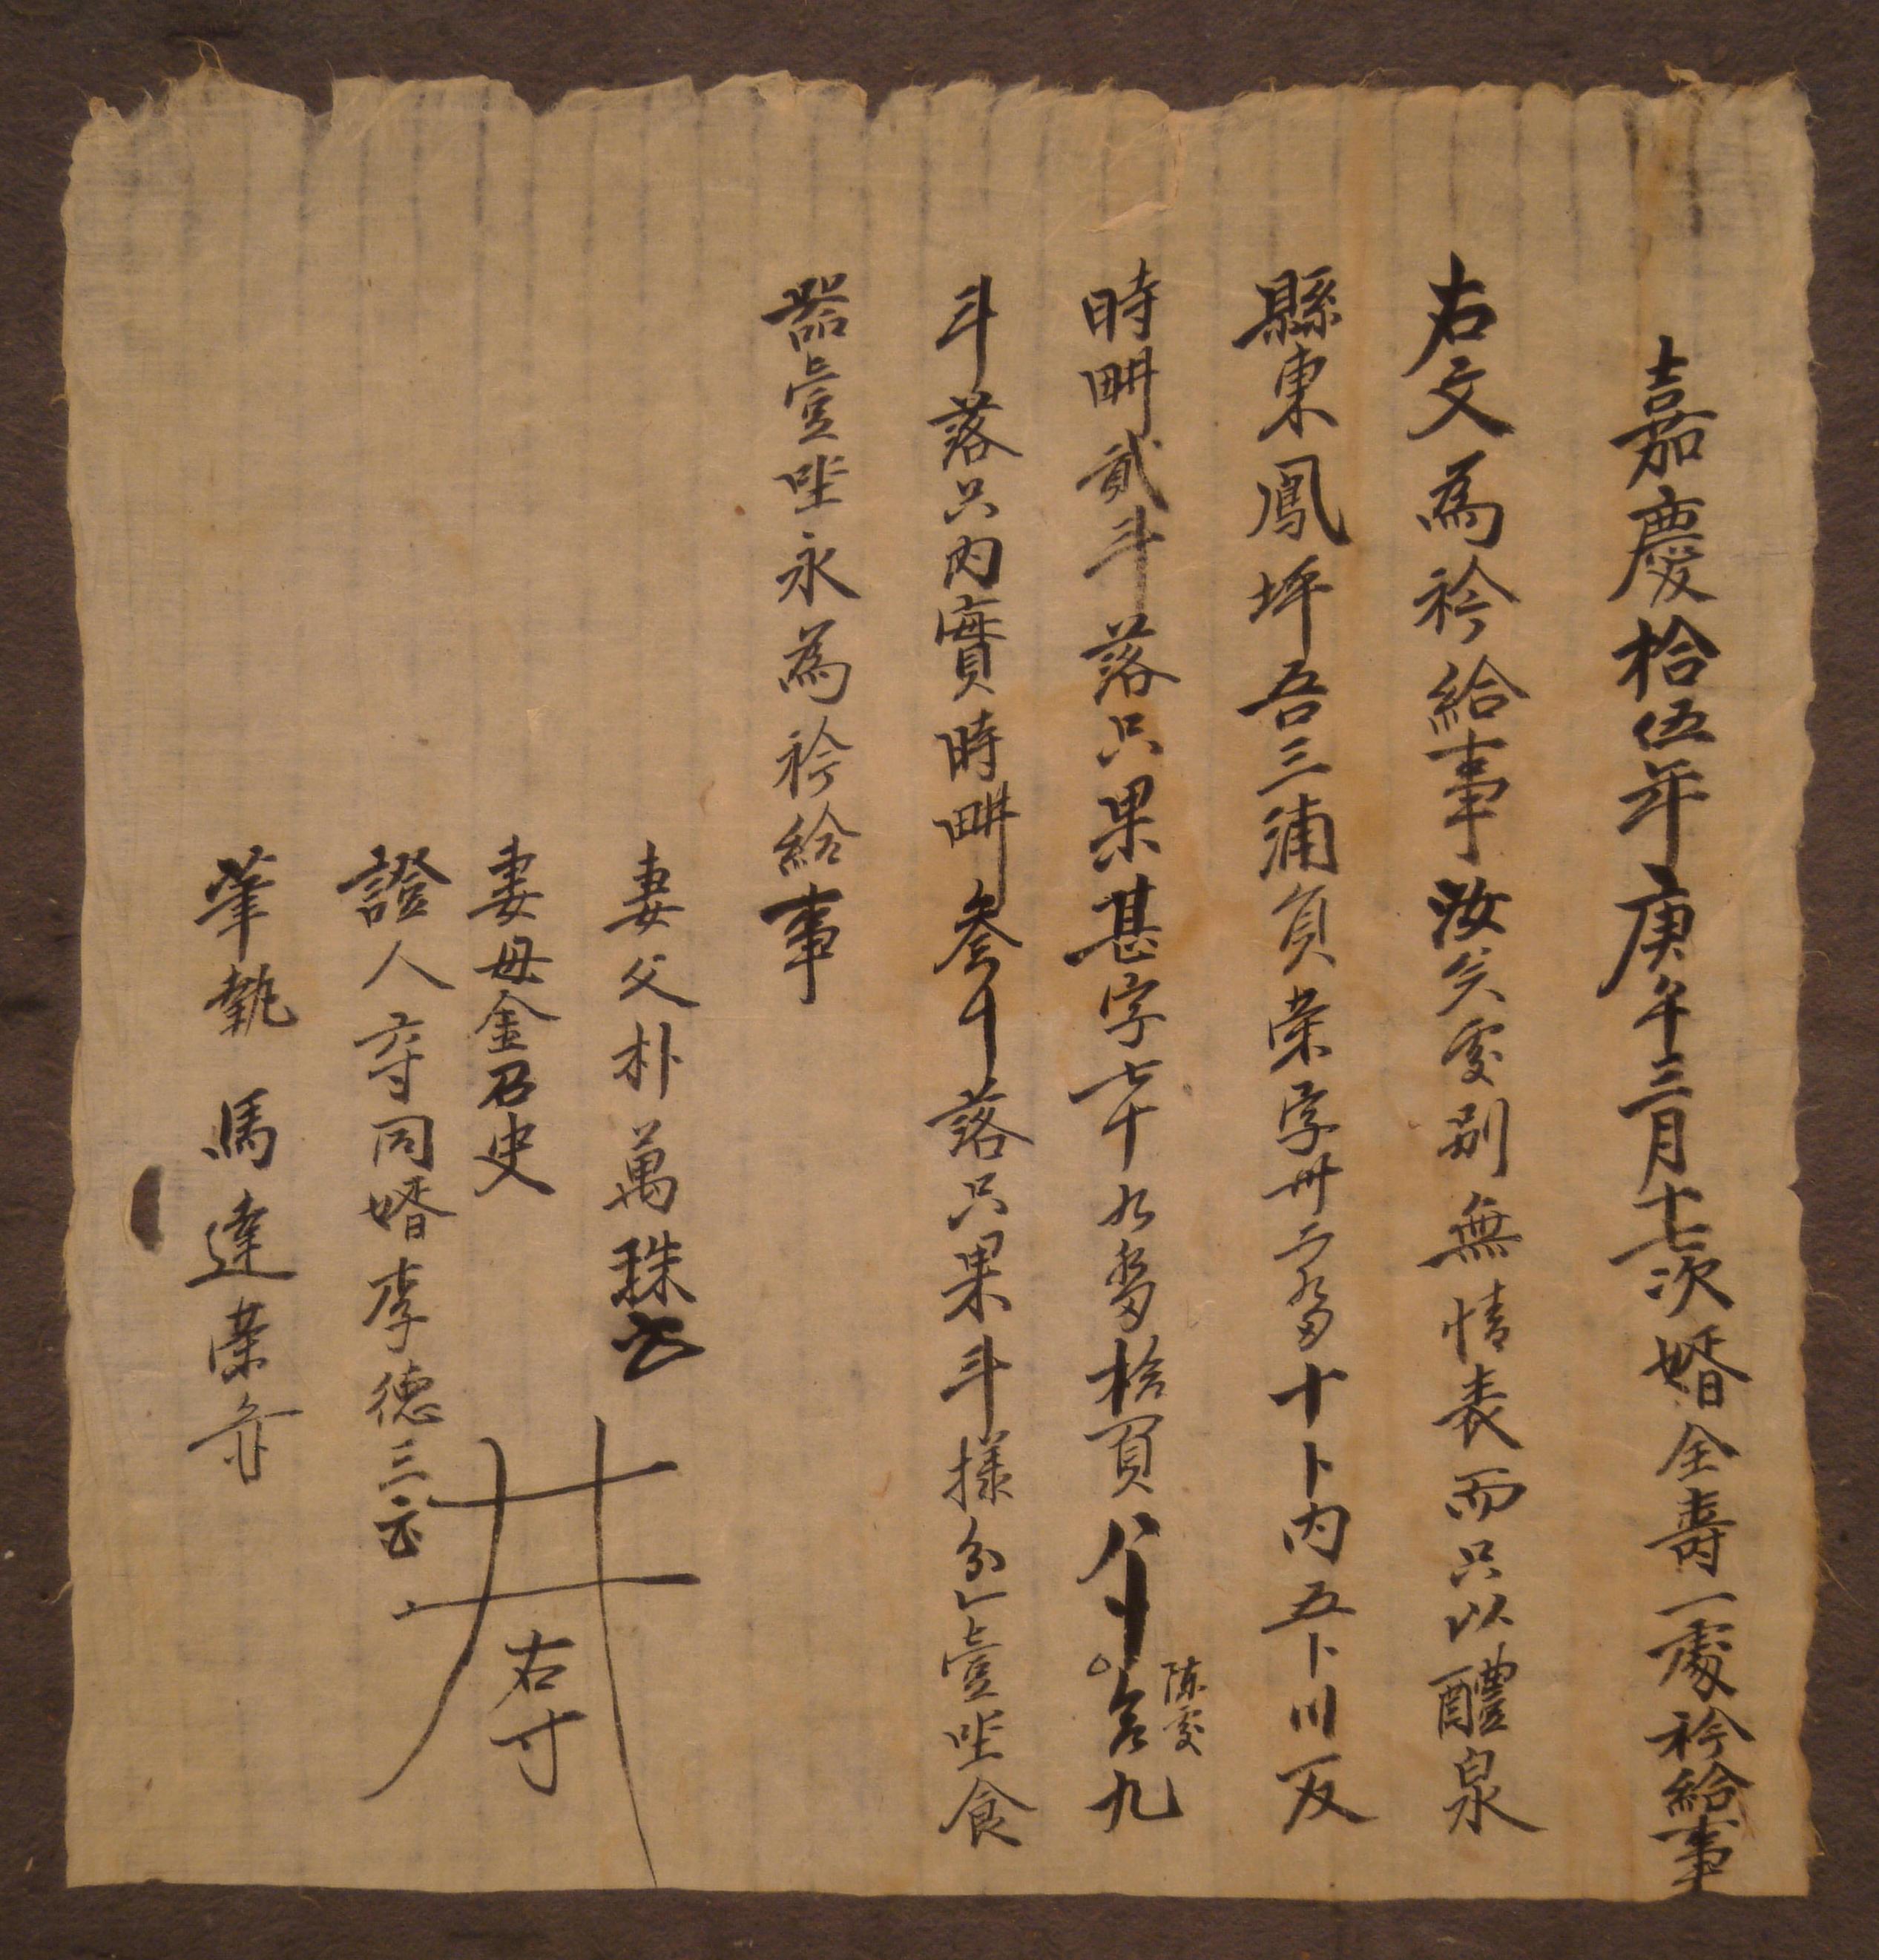 嘉慶拾伍年庚午三月十七次婚全壽一處衿給事
右文為衿給事汝矣處別無情表而只以醴泉
縣東鳳坪吾三浦員榮字卅二畓十卜內五卜川反
時畊貳斗落只果甚字七十九畓拾 負 陳處 九
斗落只內實時畊叁斗落只果斗樣 壹坐食
器壹坐永為衿給事
妻父朴萬珠
妻母金召史
右寸
證人 同婚李德三
筆執 馬達榮